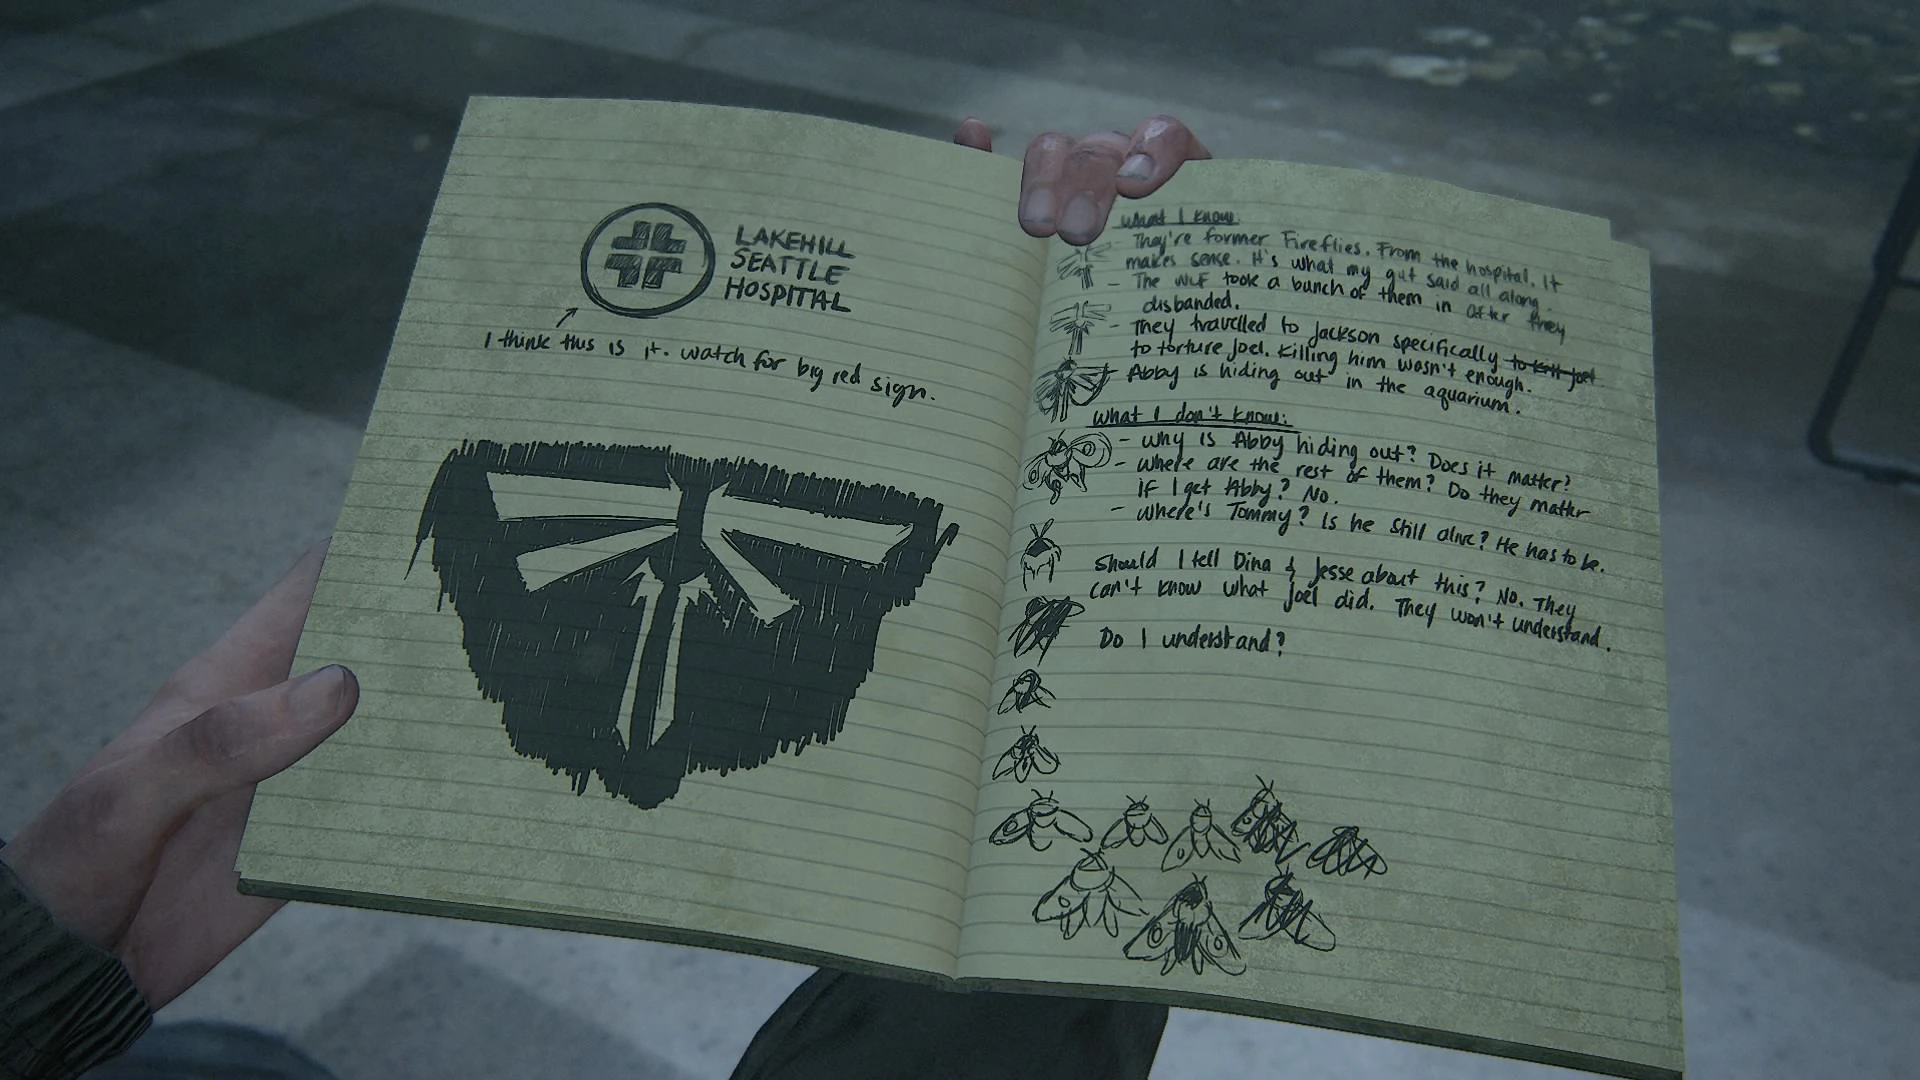 LAKEHILL
SEATTLE
HOSPITAL
I think this is it. watch for big red sign.
What I know:
- They're former Fireflies. From the hospital. It
makes sense. It's what my gut said all along.
- The WLF took a bunch of them in after they
disbanded.
- They travelled to Jackson specifically to kill Joel
to torture Joel. Killing him wasn't enough.
- Abby is hiding out in the aquarium.
What I don't know:
- Why is Abby hiding out? Does it matter?
- Where are the rest of them? Do they matter
if I get Abby? No.
- Where's Tommy? Is he still alive? He has to be.
Should I tell Dina & Jesse about this? No. They
can't know what Joel did. They won't understand.
Do I understand?